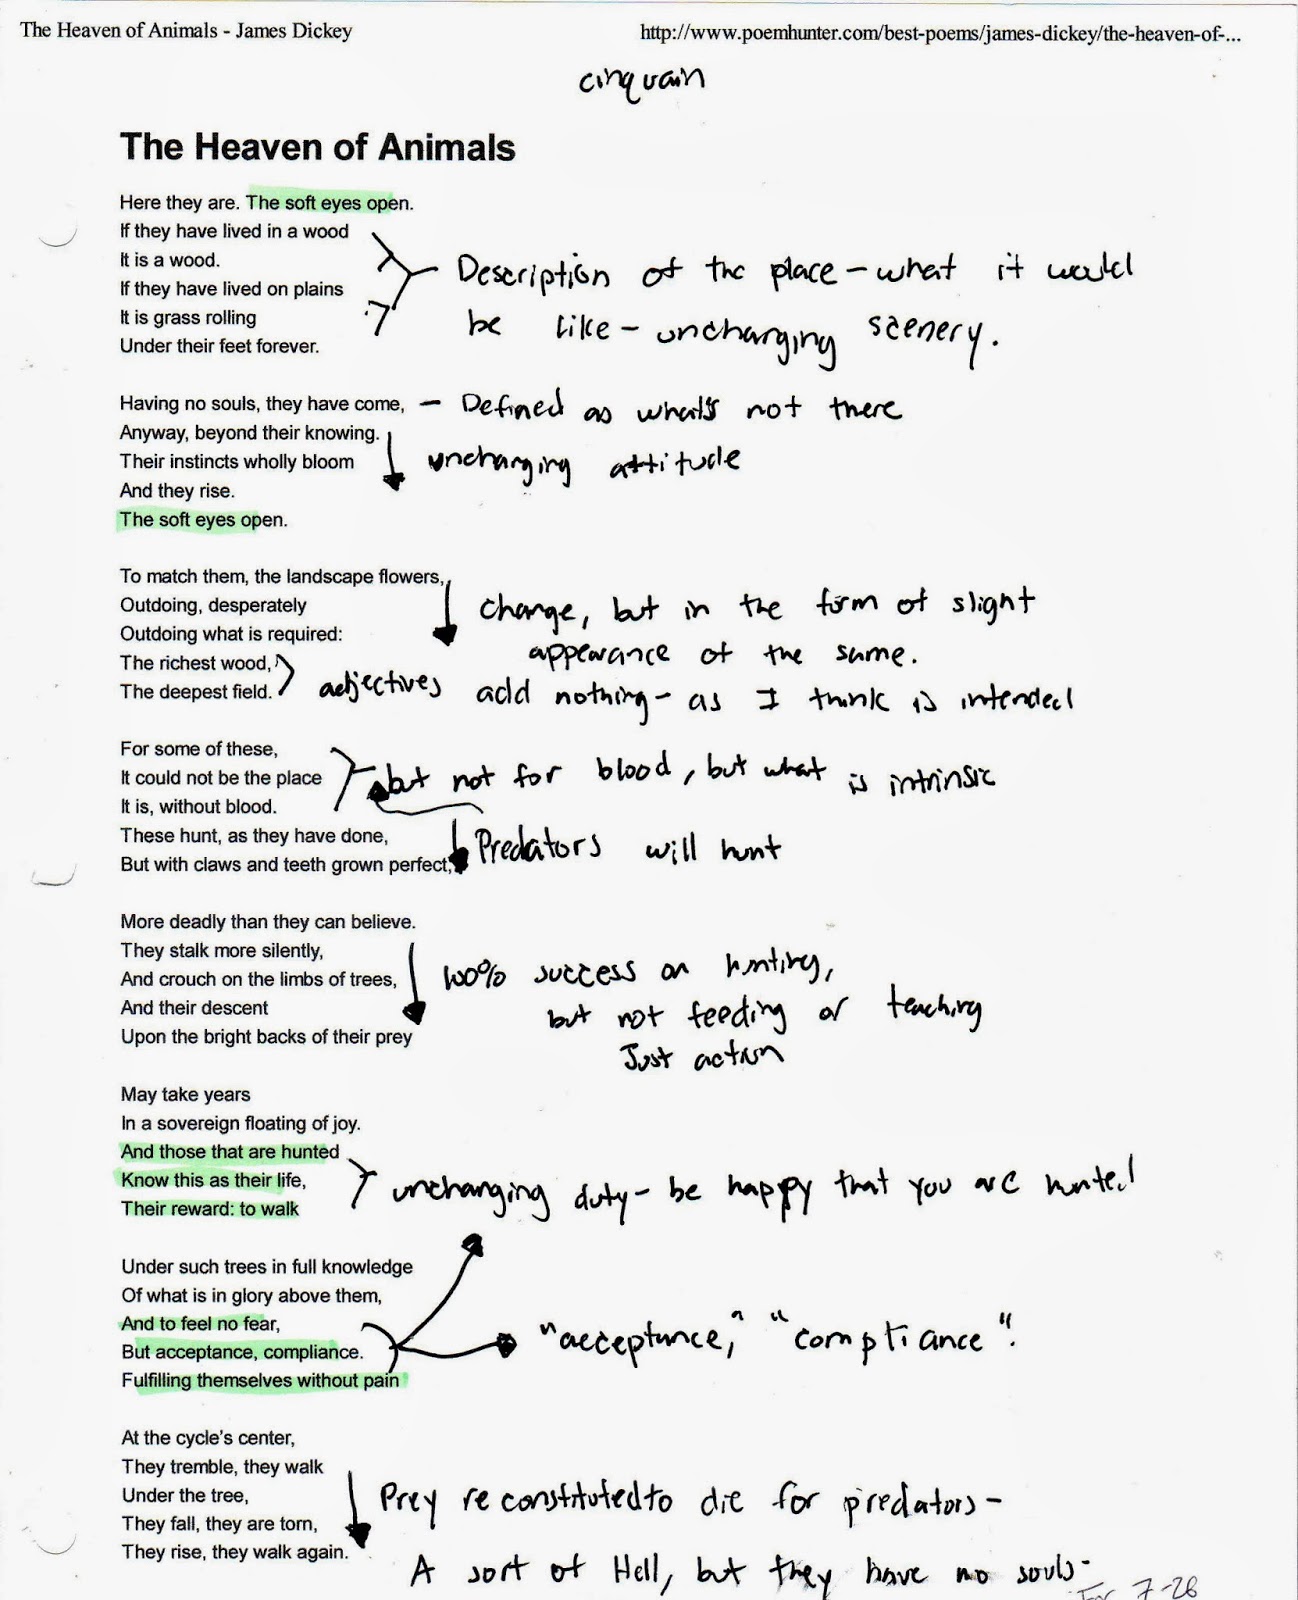 The Heaven of Animals - James Dickey http://www.poemhunter.com/best-poems/james-dickey/the-heaven-of-...
cinquain
The Heaven of Animals
Here they are. The soft eyes open.
If they have lived in a wood
It is a wood.
If they have lived on plains
It is grass rolling
Under their feet forever.
Description of the place - what it would
be like - unchanging scenery.
Having no souls, they have come, - Defined as what's not there
Anyway, beyond their knowing.
Their instincts wholly bloom unchanging attitude
And they rise.
The soft eyes open.
To match them, the landscape flowers,
Outdoing, desperately change, but in the form of slight
Outdoing what is required: appearance of the same.
The richest wood,
The deepest field. adjectives add nothing - as I think is intended
For some of these,
It could not be the place but not for blood, but what is intrinsic
It is, without blood.
These hunt, as they have done, Predators will hunt
But with claws and teeth grown perfect,
More deadly than they can believe.
They stalk more silently,
And crouch on the limbs of trees, 100% success on hunting,
And their descent but not feeding or teaching
Upon the bright backs of their prey Just action
May take years
In a sovereign floating of joy.
And those that are hunted
Know this as their life, unchanging duty - be happy that you are hunted
Their reward: to walk
Under such trees in full knowledge
Of what is in glory above them,
And to feel no fear,
But acceptance, compliance. "acceptance," "compliance".
Fulfilling themselves without pain
At the cycle's center,
They tremble, they walk
Under the tree, Prey reconstituted to die for predators -
They fall, they are torn,
They rise, they walk again. A sort of Hell, but they have no souls-
7-28